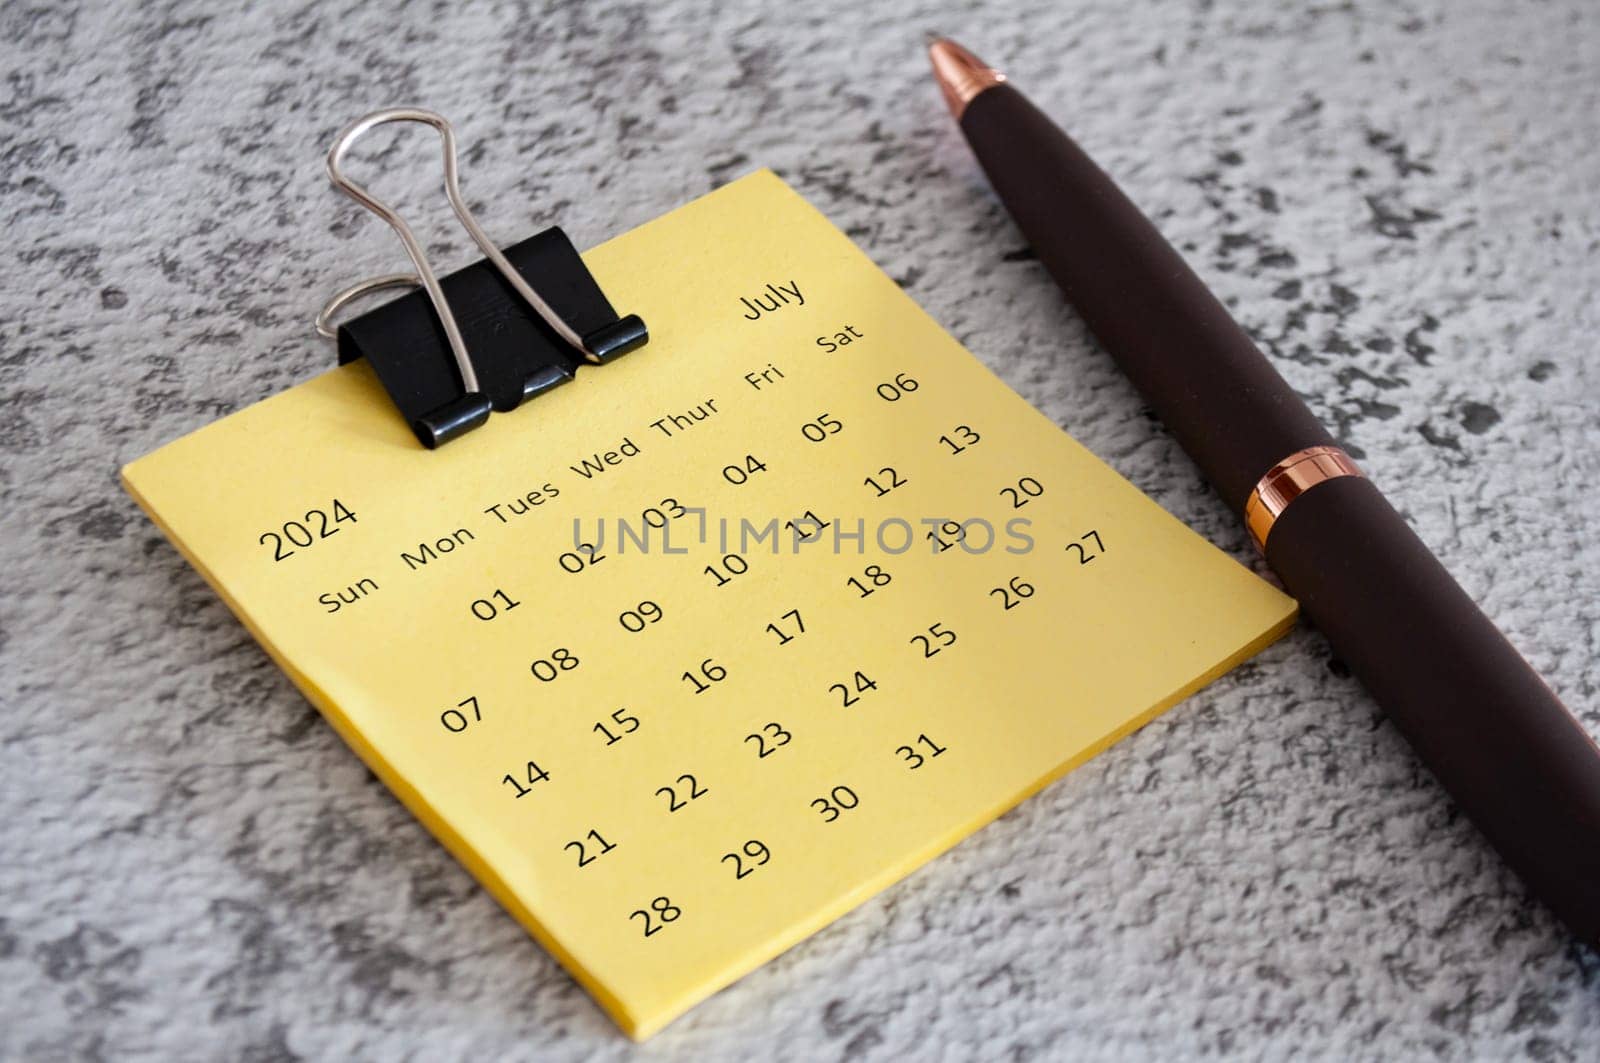 2024 July
Sun Mon Tues Wed Thur Fri Sat
01 02 03 04 05 06
07 08 09 10 11 12 13
14 15 16 17 18 19 20
21 22 23 24 25 26 27
28 29 30 31
UNLIMPHOTOS